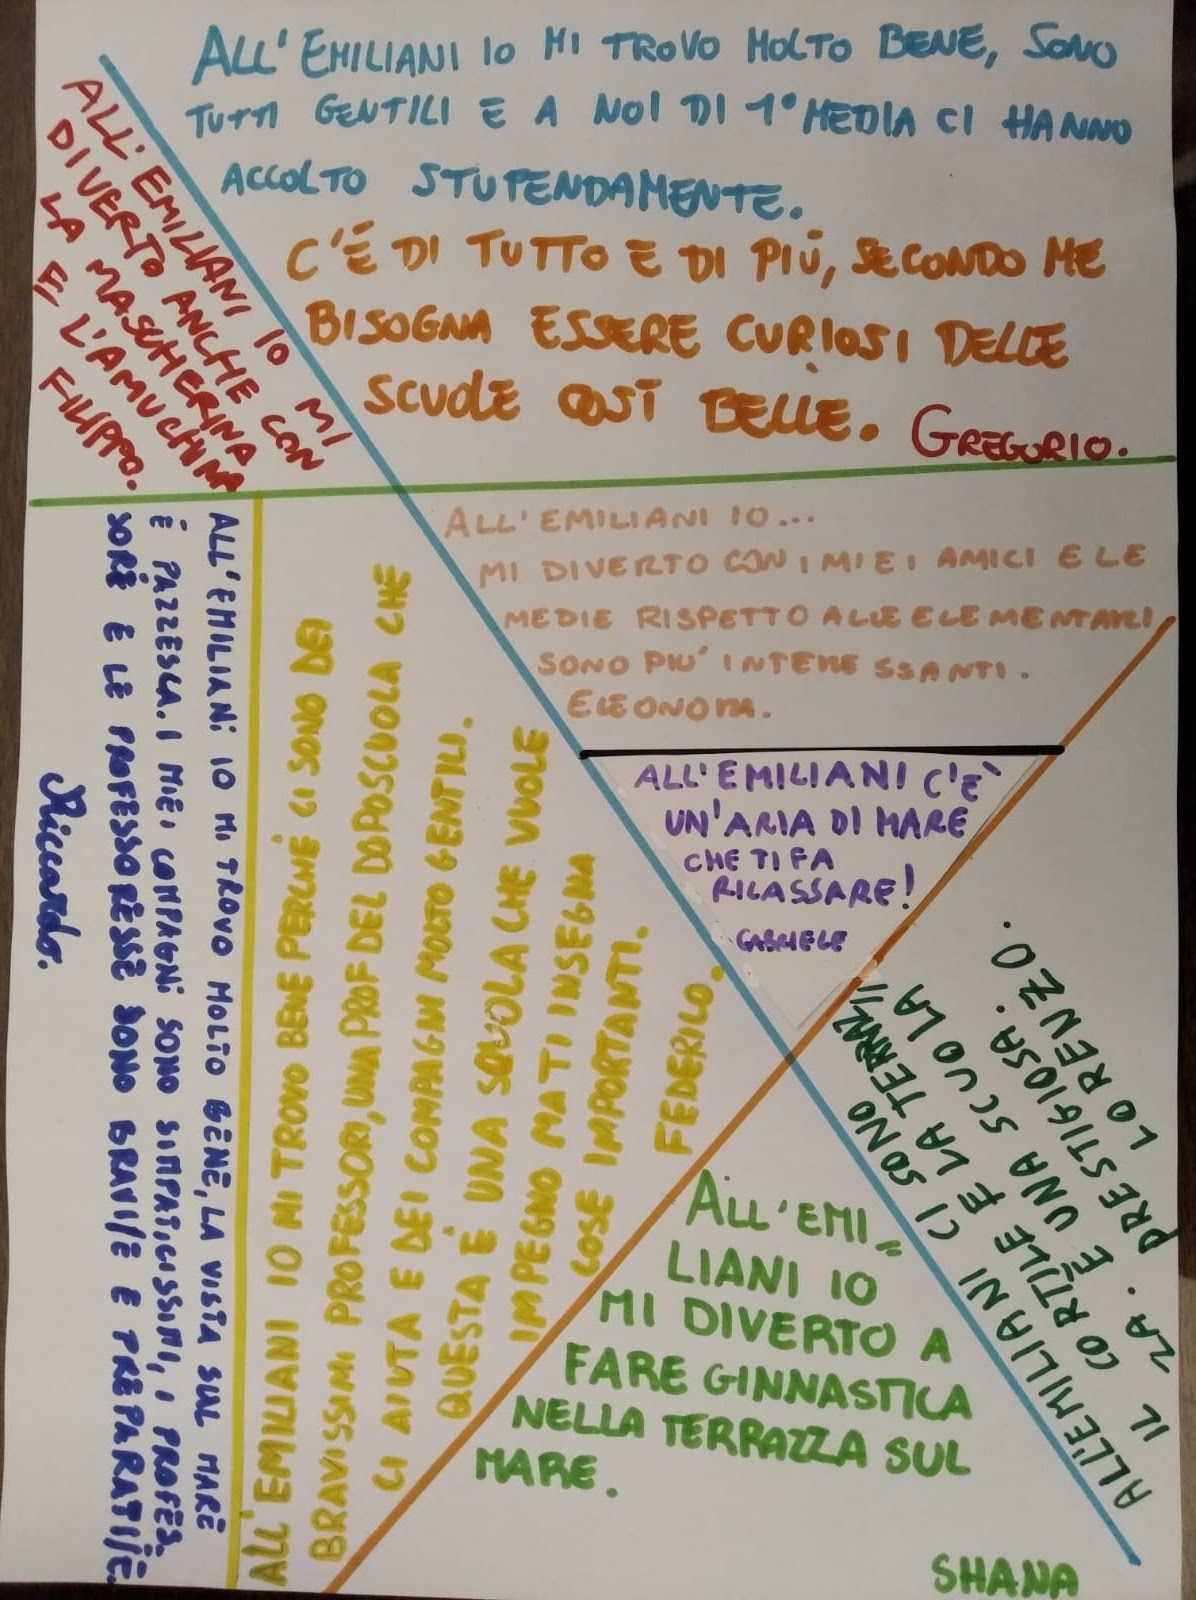 ALL'EMILIANI IO MI TROVO MOLTO BENE, SONO
TUTTI GENTILI E A NOI DI 1° MEDIA CI HANNO
ACCOLTO STUPENDAMENTE.
C'É DI TUTTO E DI PIÚ, SECONDO ME
BISOGNA ESSERE CURIOSI DELLE
SCUOLE COSÌ BELLE.
GREGORIO.
ALL'EMILIANI IO MI
DIVERTO ANCHE CON
LA MASCHERINA
E L'AMUCHINA
FILIPPO.
ALL'EMILIANI IO...
MI DIVERTO CON I MIEI AMICI E LE
MEDIE RISPETTO ALLE ELEMENTARI
SONO PIU' INTERESSANTI.
ELEONORA.
ALL'EMILIANI C'E'
UN'ARIA DI MARE
CHE TI FA
RILASSARE!
GABRIELE
ALL'EMILIANI IO MI TROVO MOLTO BENE, LA VISTA SUL MARE
É PAZZESCA. I MIEI COMPAGNI SONO SIMPATICISSIMI, I PROFES.
SORI E LE PROFESSORESSE SONO BRAVI/E E PREPARATI/E.
Riccardo.
ALL'EMILIANI IO MI TROVO BENE PERCHÉ CI SONO DEI
BRAVISSIMI PROFESSORI, UNA PROF DEL DOPOSCUOLA CHE
CI AIUTA E DEI COMPAGNI MOLTO GENTILI.
QUESTA É UNA SCUOLA CHE VUOLE
IMPEGNO MA TI INSEGNA
COSE IMPORTANTI.
FEDERICO.
ALL'EMILIANI CI SONO
IL CORTILE E LA TERRAZ
ZA. É UNA SCUOLA
PRESTIGIOSA.
LORENZO.
ALL'EMI=
LIANI IO
MI DIVERTO A
FARE GINNASTICA
NELLA TERRAZZA SUL
MARE.
SHANA